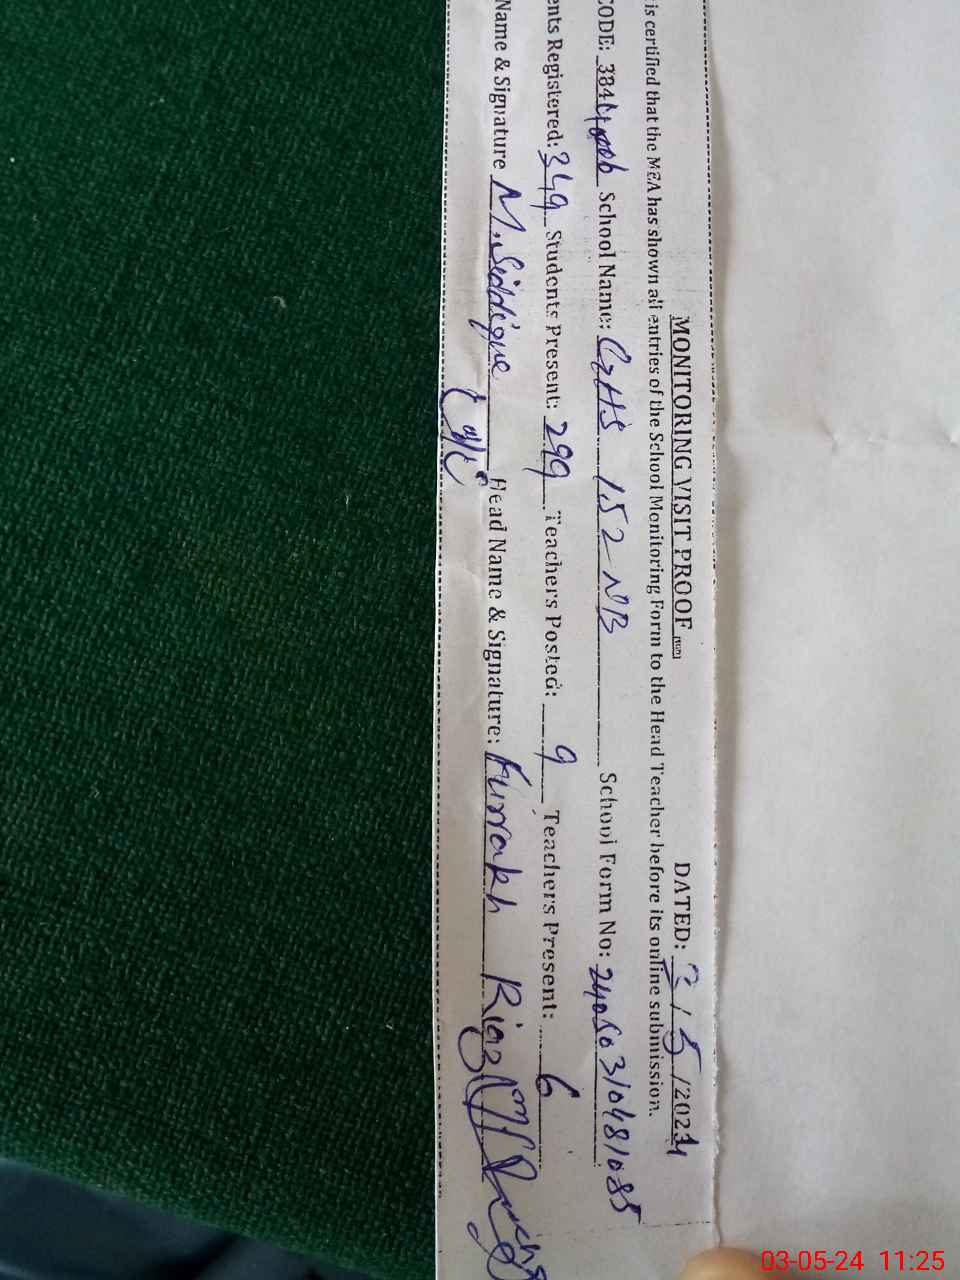 MONITORING VISIT PROOF DATED: 3/5/2024
is certified that the MEA has shown all entries of the School Monitoring Form to the Head Teacher before its online submission.
CODE: School Name: GHS 152 NB School Form No: 24050310481085
ents Registered: 349 Students Present: 299 Teachers Posted: 9 Teachers Present: 6
Name & Signature M. Siddique Head Name & Signature: Furrakh Riaz
03-05-24 11:25